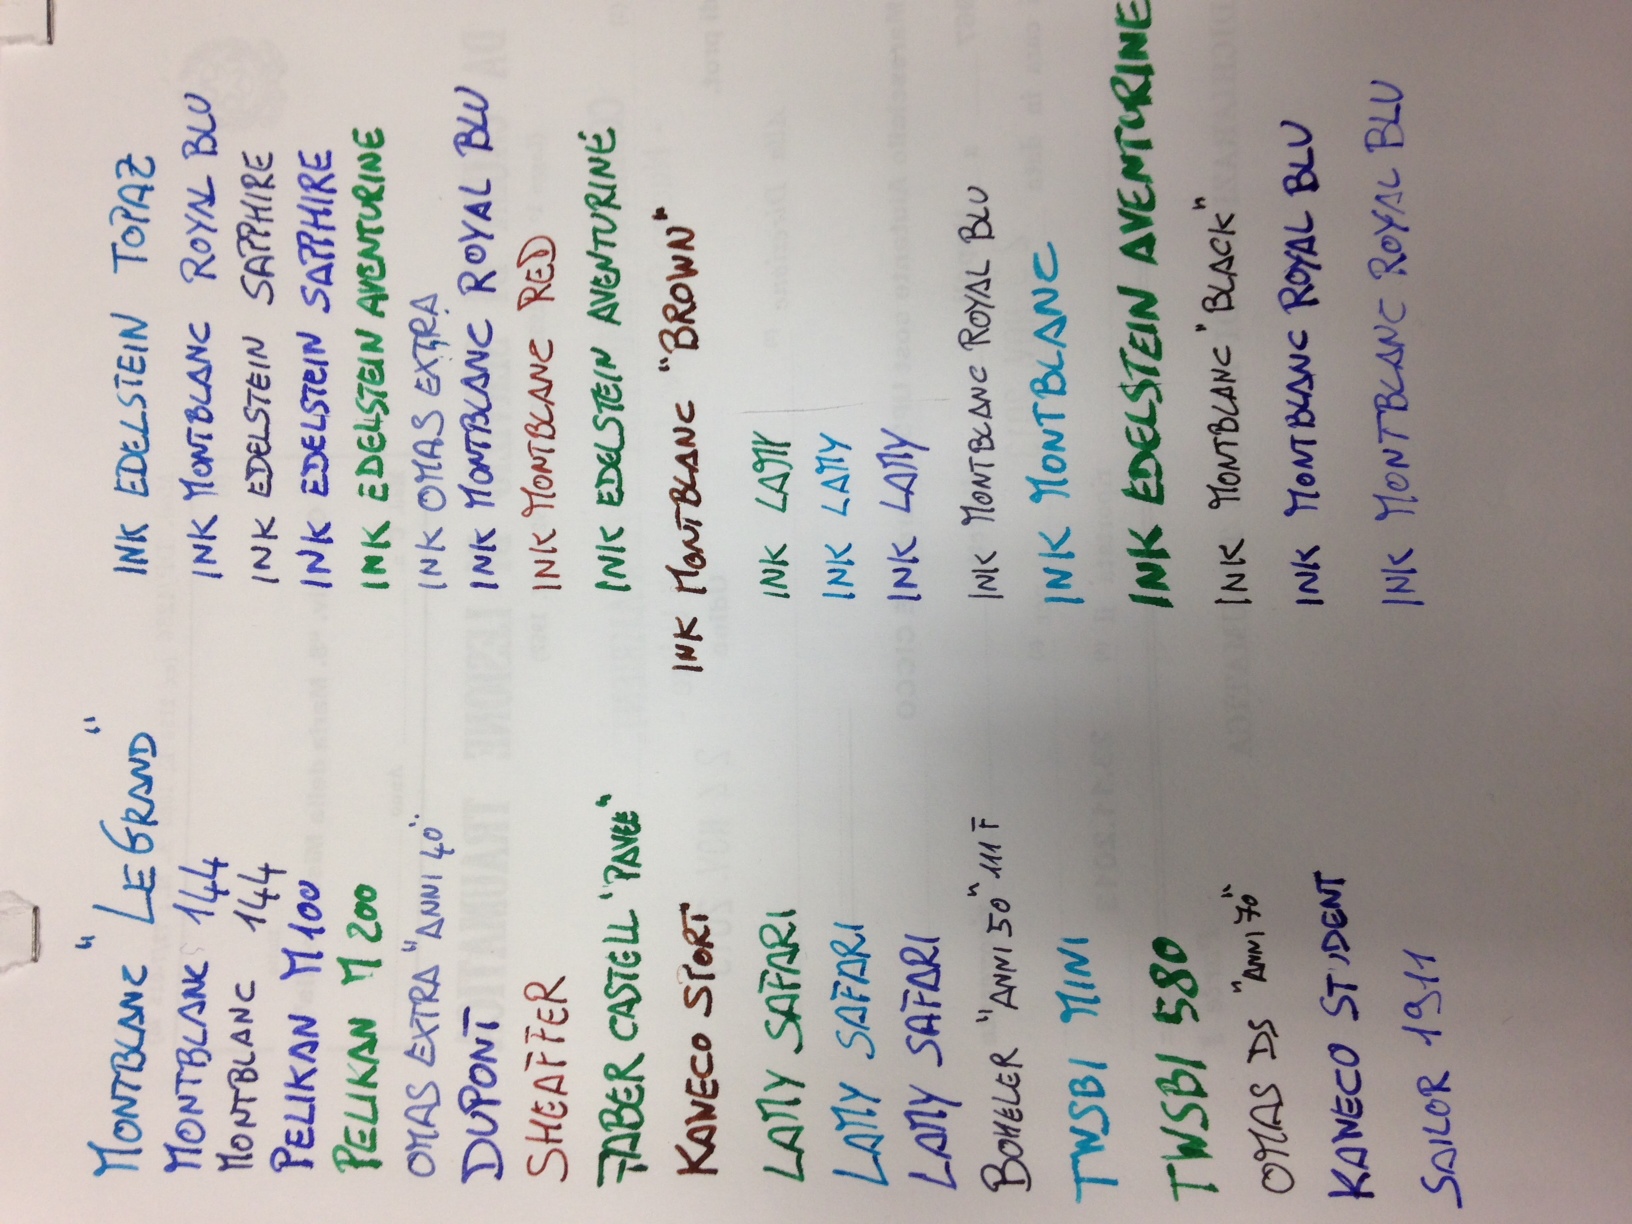 MONTBLANC "LE GRAND" INK EDELSTEIN TOPAZ
MONTBLANC 144 INK MONTBLANC ROYAL BLU
MONTBLANC 144 INK EDELSTEIN SAPPHIRE
PELIKAN M100 INK EDELSTEIN SAPPHIRE
PELIKAN M200 INK EDELSTEIN AVENTURINE
OMAS EXTRA "ANNI 40" INK OMAS EXTRA
DUPONT INK MONTBLANC ROYAL BLU
SHEAFFER INK MONTBLANC RED
FABER CASTELL "PAVEE" INK EDELSTEIN AVENTURINE
KAWECO SPORT INK MONTBLANC "BROWN"
LAMY SAFARI INK LAMY
LAMY SAFARI INK LAMY
LAMY SAFARI INK LAMY
BOHELER "ANNI 50" 111 F INK MONTBLANC ROYAL BLU
TWSBI MINI INK MONTBLANC
TWSBI 580 INK EDELSTEIN AVENTURINE
OMAS DS "ANNI 70" INK MONTBLANC "BLACK"
KAWECO STUDENT INK MONTBLANC ROYAL BLU
SAILOR 1911 INK MONTBLANC ROYAL BLU